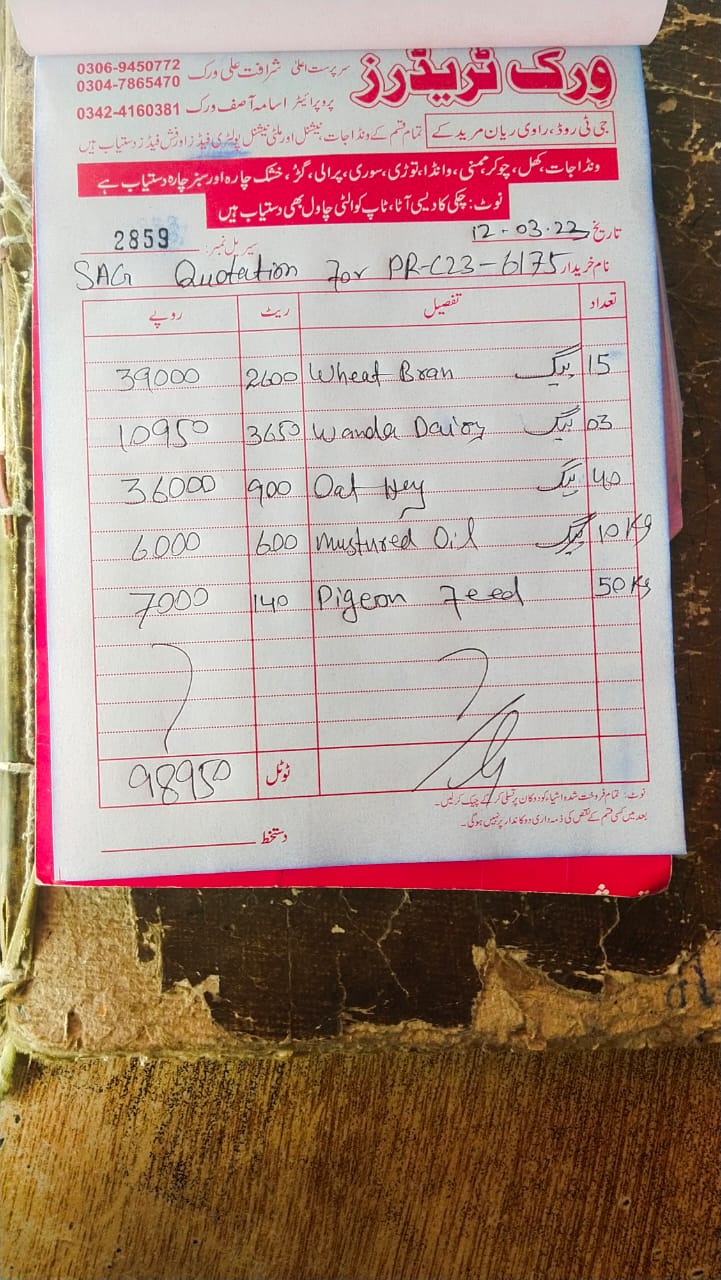 ورک ٹریڈرز
سرپرست اعلیٰ شرافت علی ورک 0306-9450772
0304-7865470
پروپرائیٹر اسامہ آصف ورک 0342-4160381
جی ٹی روڈ، راوی ریان مریدکے
تمام قسم کے ونڈا جات نیشنل اور ملٹی نیشنل پولٹری فیڈز اور فش فیڈز دستیاب ہیں
ونڈا جات، کھل، چوکر، وانڈا، توڑی، سوری، پرالی، گڑ، خشک چارہ اور سبز چارہ دستیاب ہے
نوٹ: چکی کا دیسی آٹا، ٹاپ کوالٹی چاول بھی دستیاب ہیں
تاریخ 12-03-23 سیریل نمبر: 2859
نام خریدار SAG Quotation For PR-C23-6175
تعداد تفصیل ریٹ روپے
15 بیگ Wheat Bran 2600 39000
03 بیگ Wanda Dairy 3650 10950
40 بیگ Oat Hey 900 36000
10 Kg Mustured Oil 600 6000
50 Kg Pigeon Feed 140 7000
ٹوٹل 98950
نوٹ: تمام فروخت شدہ اشیاء کو دوکان پر تسلی کر کے چیک کر لیں۔
بعد میں کسی قسم کے نقص کی ذمہ داری دوکاندار پر نہیں ہوگی۔
دستخط